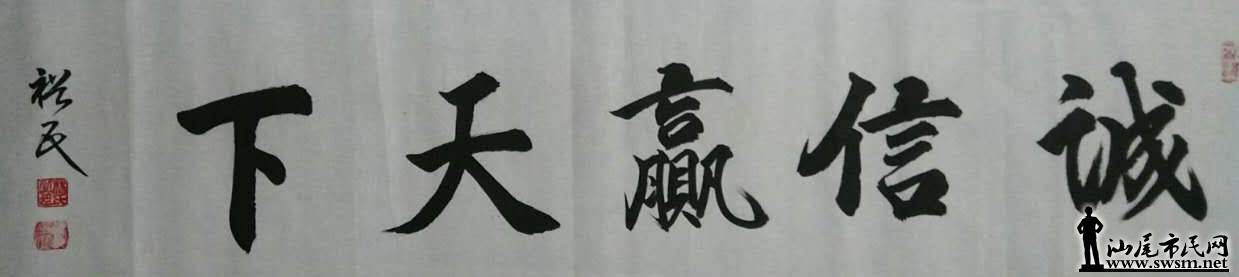 诚信赢天下
裕民
汕尾市民网
www.swsm.net